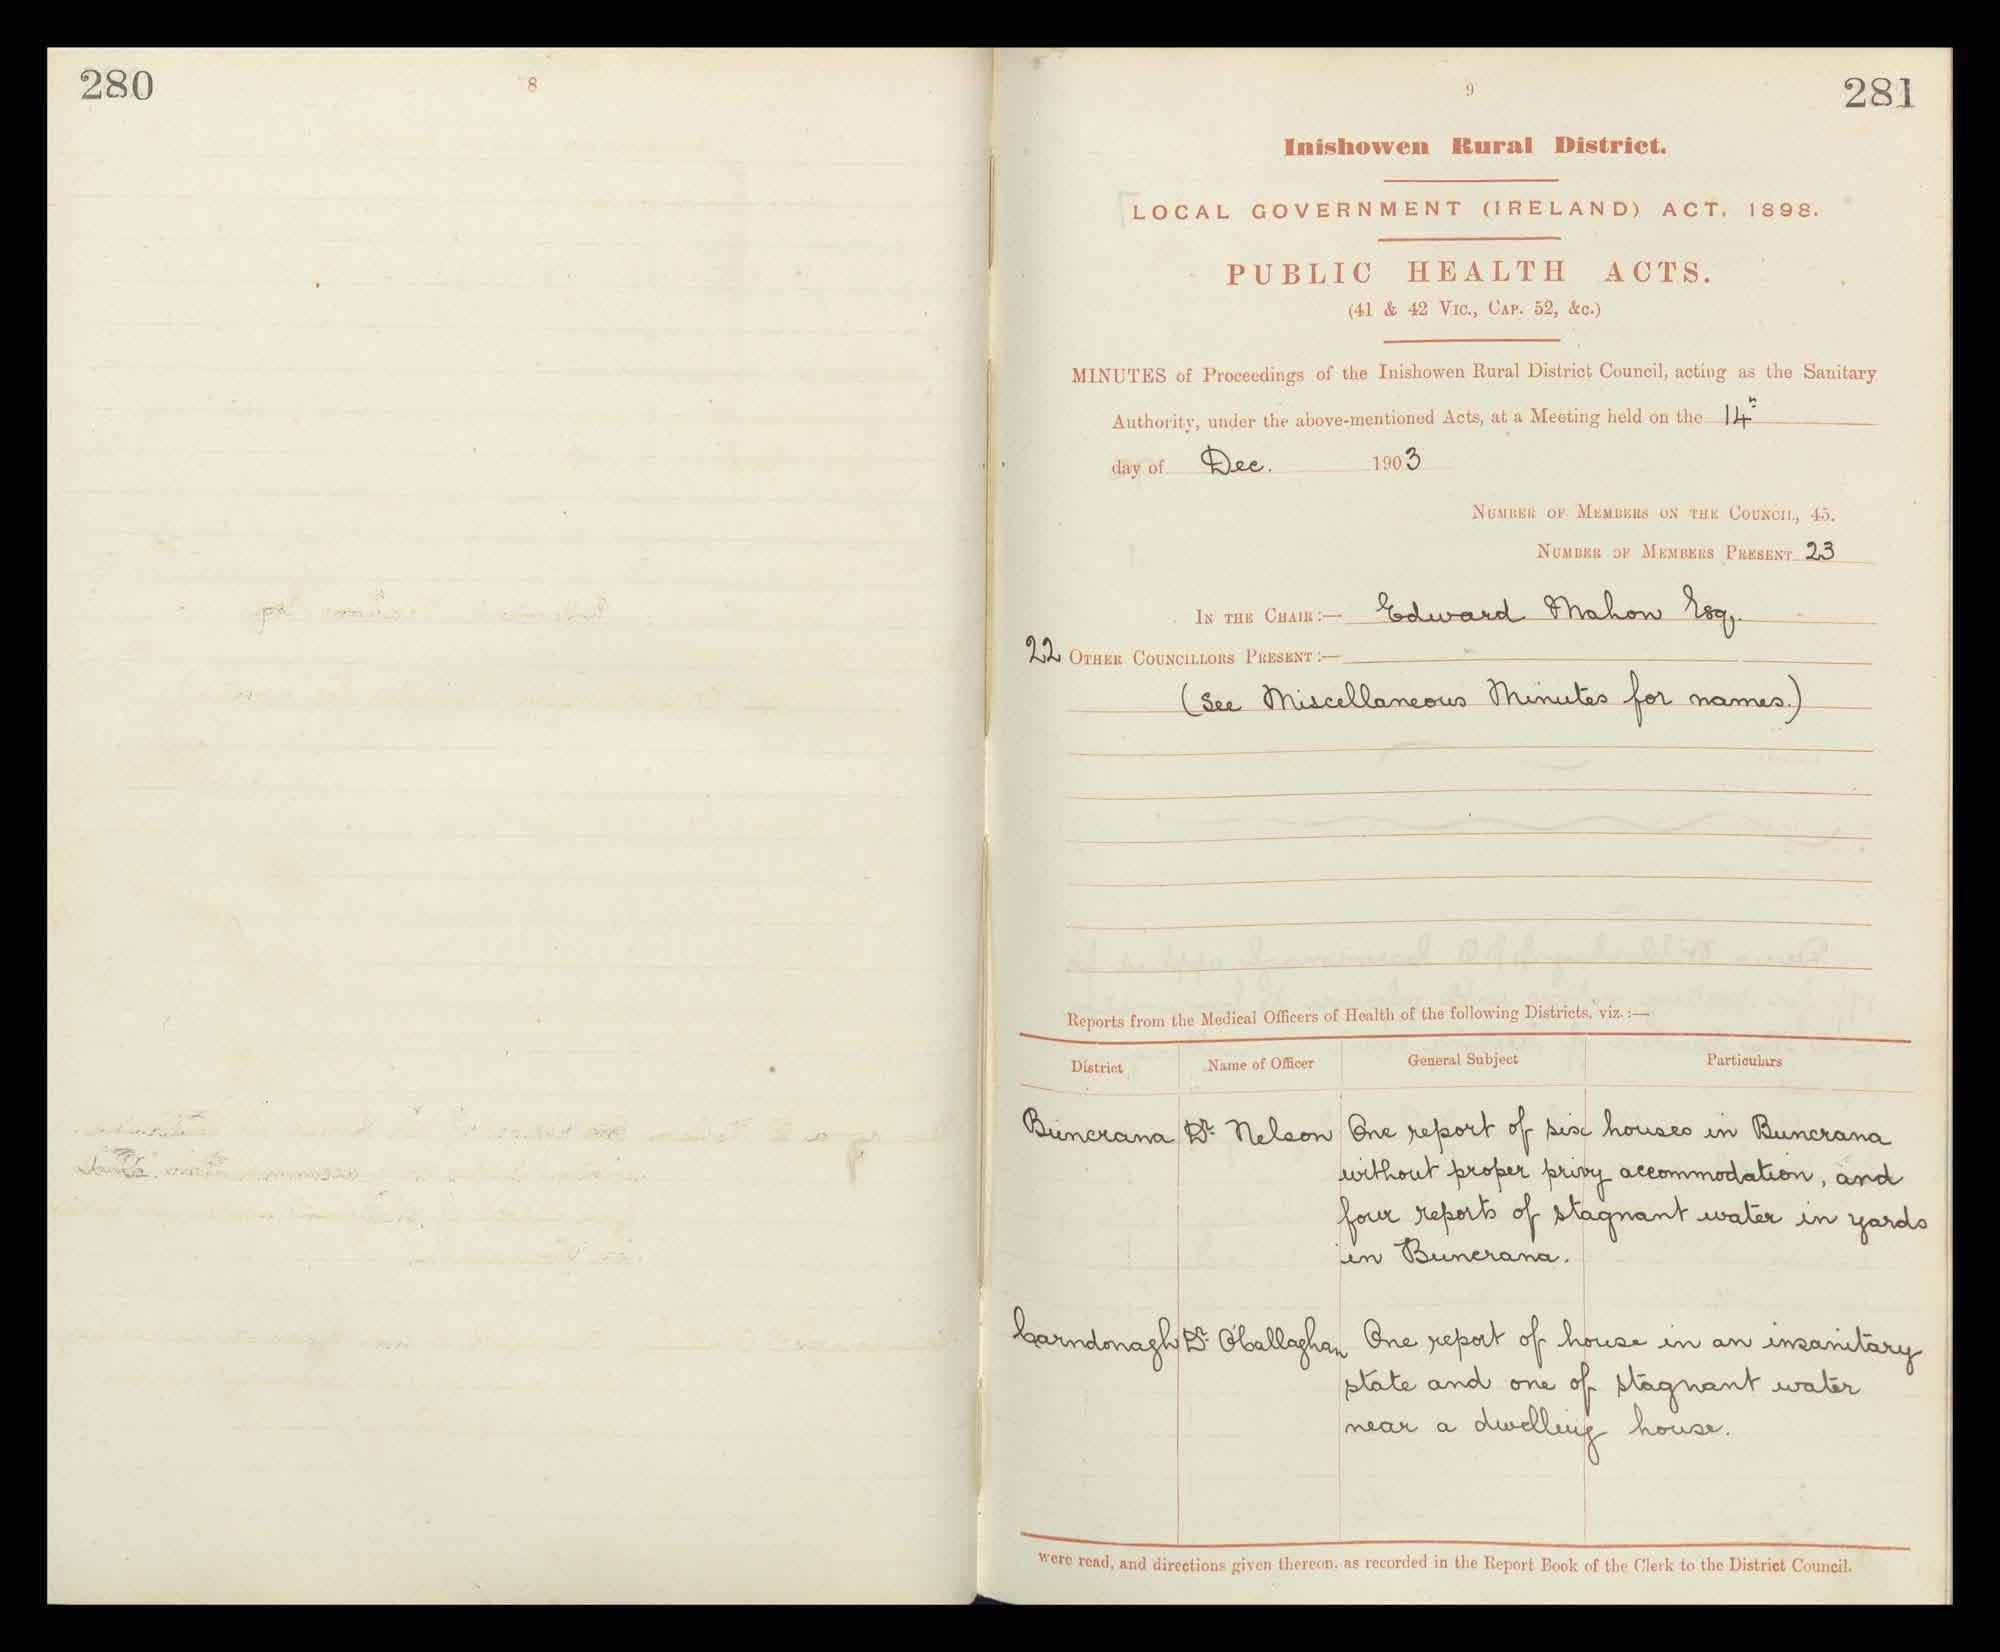 280
8
9
281
Inishowen Rural District.
LOCAL GOVERNMENT (IRELAND) ACT, 1898.
PUBLIC HEALTH ACTS.
(41 & 42 Vic., Cap. 52, &c.)
MINUTES of Proceedings of the Inishowen Rural District Council, acting as the Sanitary
Authority, under the above-mentioned Acts, at a Meeting held on the 14th
day of Dec. 1903
Number of Members on the Council, 45.
Number of Members Present 23
In the Chair:— Edward Mahon Esq.
22 Other Councillors Present:—
(See Miscellaneous Minutes for names.)
Reports from the Medical Officers of Health of the following Districts, viz.:—
District Name of Officer General Subject Particulars
Buncrana Dr. Nelson One report of six houses in Buncrana
without proper privy accommodation, and
four reports of stagnant water in yards
in Buncrana.
Carndonagh Dr. O'Callaghan One report of house in an insanitary
state and one of stagnant water
near a dwelling house.
were read, and directions given thereon, as recorded in the Report Book of the Clerk to the District Council.